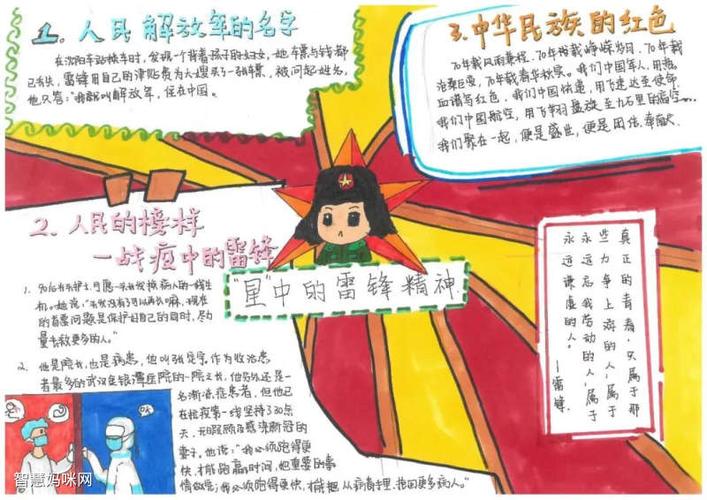 1. 人民解放军的名字
在沈阳车站换车时,发现一个背着孩子的妇女,她车票与钱都
已丢失,雷锋用自己的津贴费为大嫂买了一张车票,被问起姓名,
他只答:“我就叫解放军,住在中国。
3.中华民族的红色
70年载风雨兼程,70年砥砺峥嵘岁月,70年载
沧桑巨变,70年载春华秋实。我们中国军人,用热
血谱写红色,我们中国
我们中国航空,用飞翔
我们聚在一起,便是盛世,便是团结,奉献
2. 人民的榜样
—战疫中的雷锋
“星”中的雷锋精神
1. 90后
机。她说:
的首要问题是保护好自己的同时,尽力
量去救更多的人。”
2. 他是院长,也是病患,他叫张定宇,作为收治患
者最多的武汉金银潭医院的一院之长,他另外还是一
名渐冻症患者,但他已
在抗疫第一线坚持了30余
天,无暇顾及感染新冠的
妻子,他说:“我必须跑得更
快,才能跑赢时间,把重要的事
情做完;我必须跑得更快,才能把
真正的青春,只属于那
些力争上游的人,属于
永远忘我劳动的人,属于
永远谦虚的人。
—雷锋
智慧妈咪网